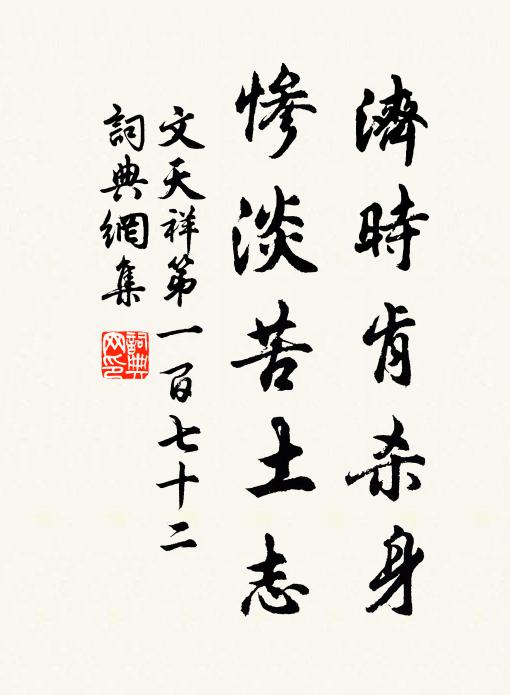 濟時肯杀身
惨淡苦士志
文天祥第一百七十二
詞典網集
詞典網印